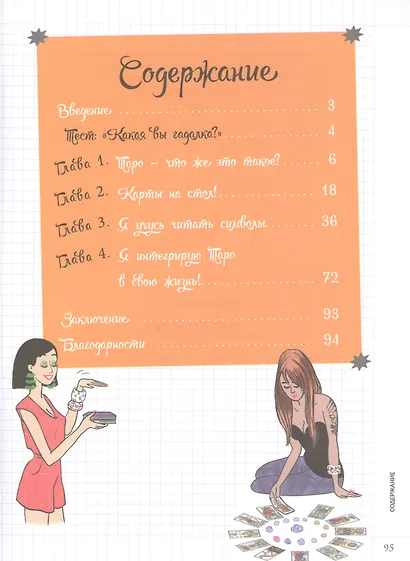 Содержание
Введение 3
Тест: «Какая вы гадалка?» 4
Глава 1. Таро – что же это такое? 6
Глава 2. Карты на стол! 18
Глава 3. Я учусь читать символы 36
Глава 4. Я интегрирую Таро
в свою жизнь! 72
Заключение 93
Благодарности 94
СОДЕРЖАНИЕ
95